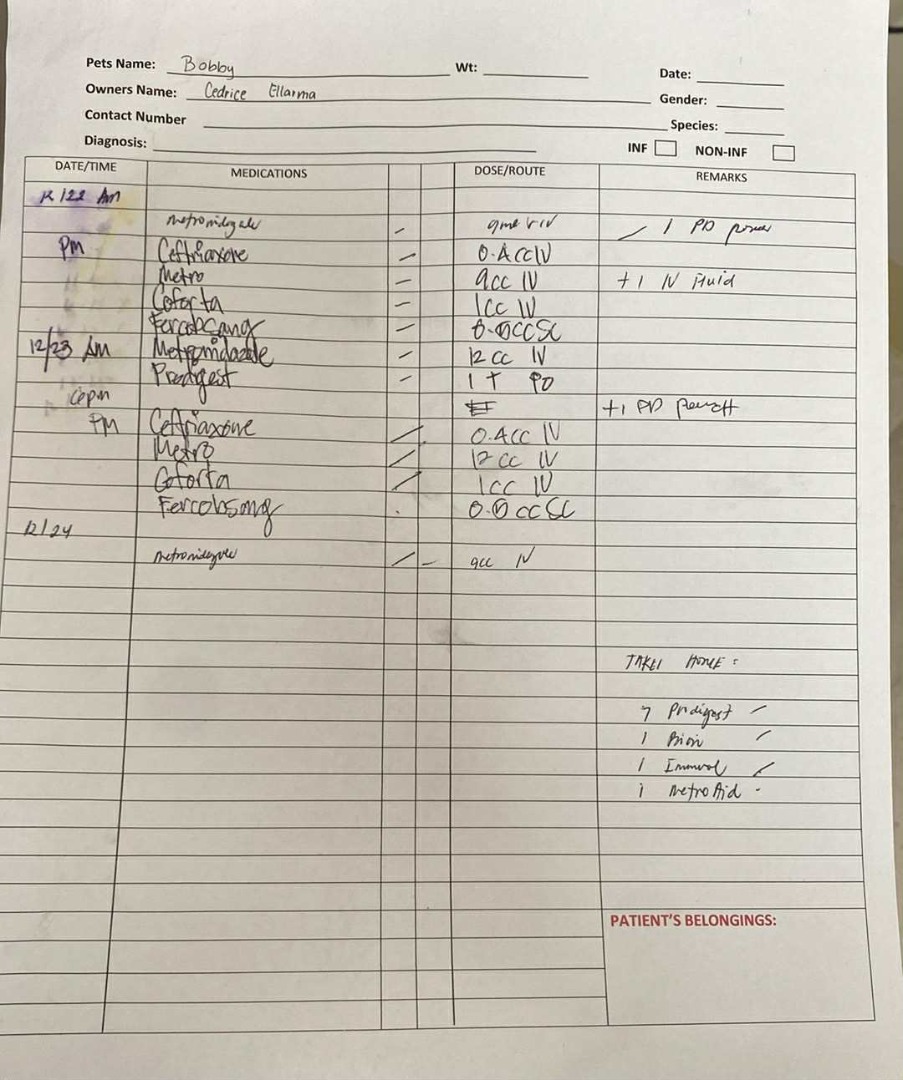 Pets Name: Bobby Wt: Date:
Owners Name: Cedrice Ellarma Gender:
Contact Number Species:
Diagnosis: INF NON-INF
DATE/TIME MEDICATIONS DOSE/ROUTE REMARKS
12/22 AM
Metronidazole - IV 1 PD
PM Ceftriaxone - 0.4cc IV
Metro - 9cc IV +1 IV Fluid
Coforta - 1cc IV
Fercobsang - SC
12/23 AM Metronidazole - 12cc IV
Prodigest - 1 T PO
6pm +1 PD
PM Ceftriaxone / 0.4cc IV
Metro / 12cc IV
Coforta / 1cc IV
Fercobsang . SC
12/24
Metronidazole / - 9cc IV
TAKE HOME:
7 Prodigest
1
1 Immunol
1 MetroAid -
PATIENT'S BELONGINGS: